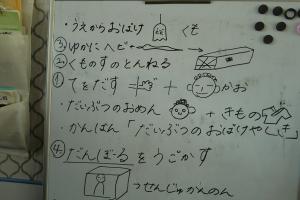 ・うえからおばけ くも
③ゆかにヘビ
②くものすのとんねる
①てをだす + かお
・だいぶつのおめん + きもの
・かんばん「だいぶつのおばけやしき」
④だんぼーるをうごかす
→せんじゅかんのん